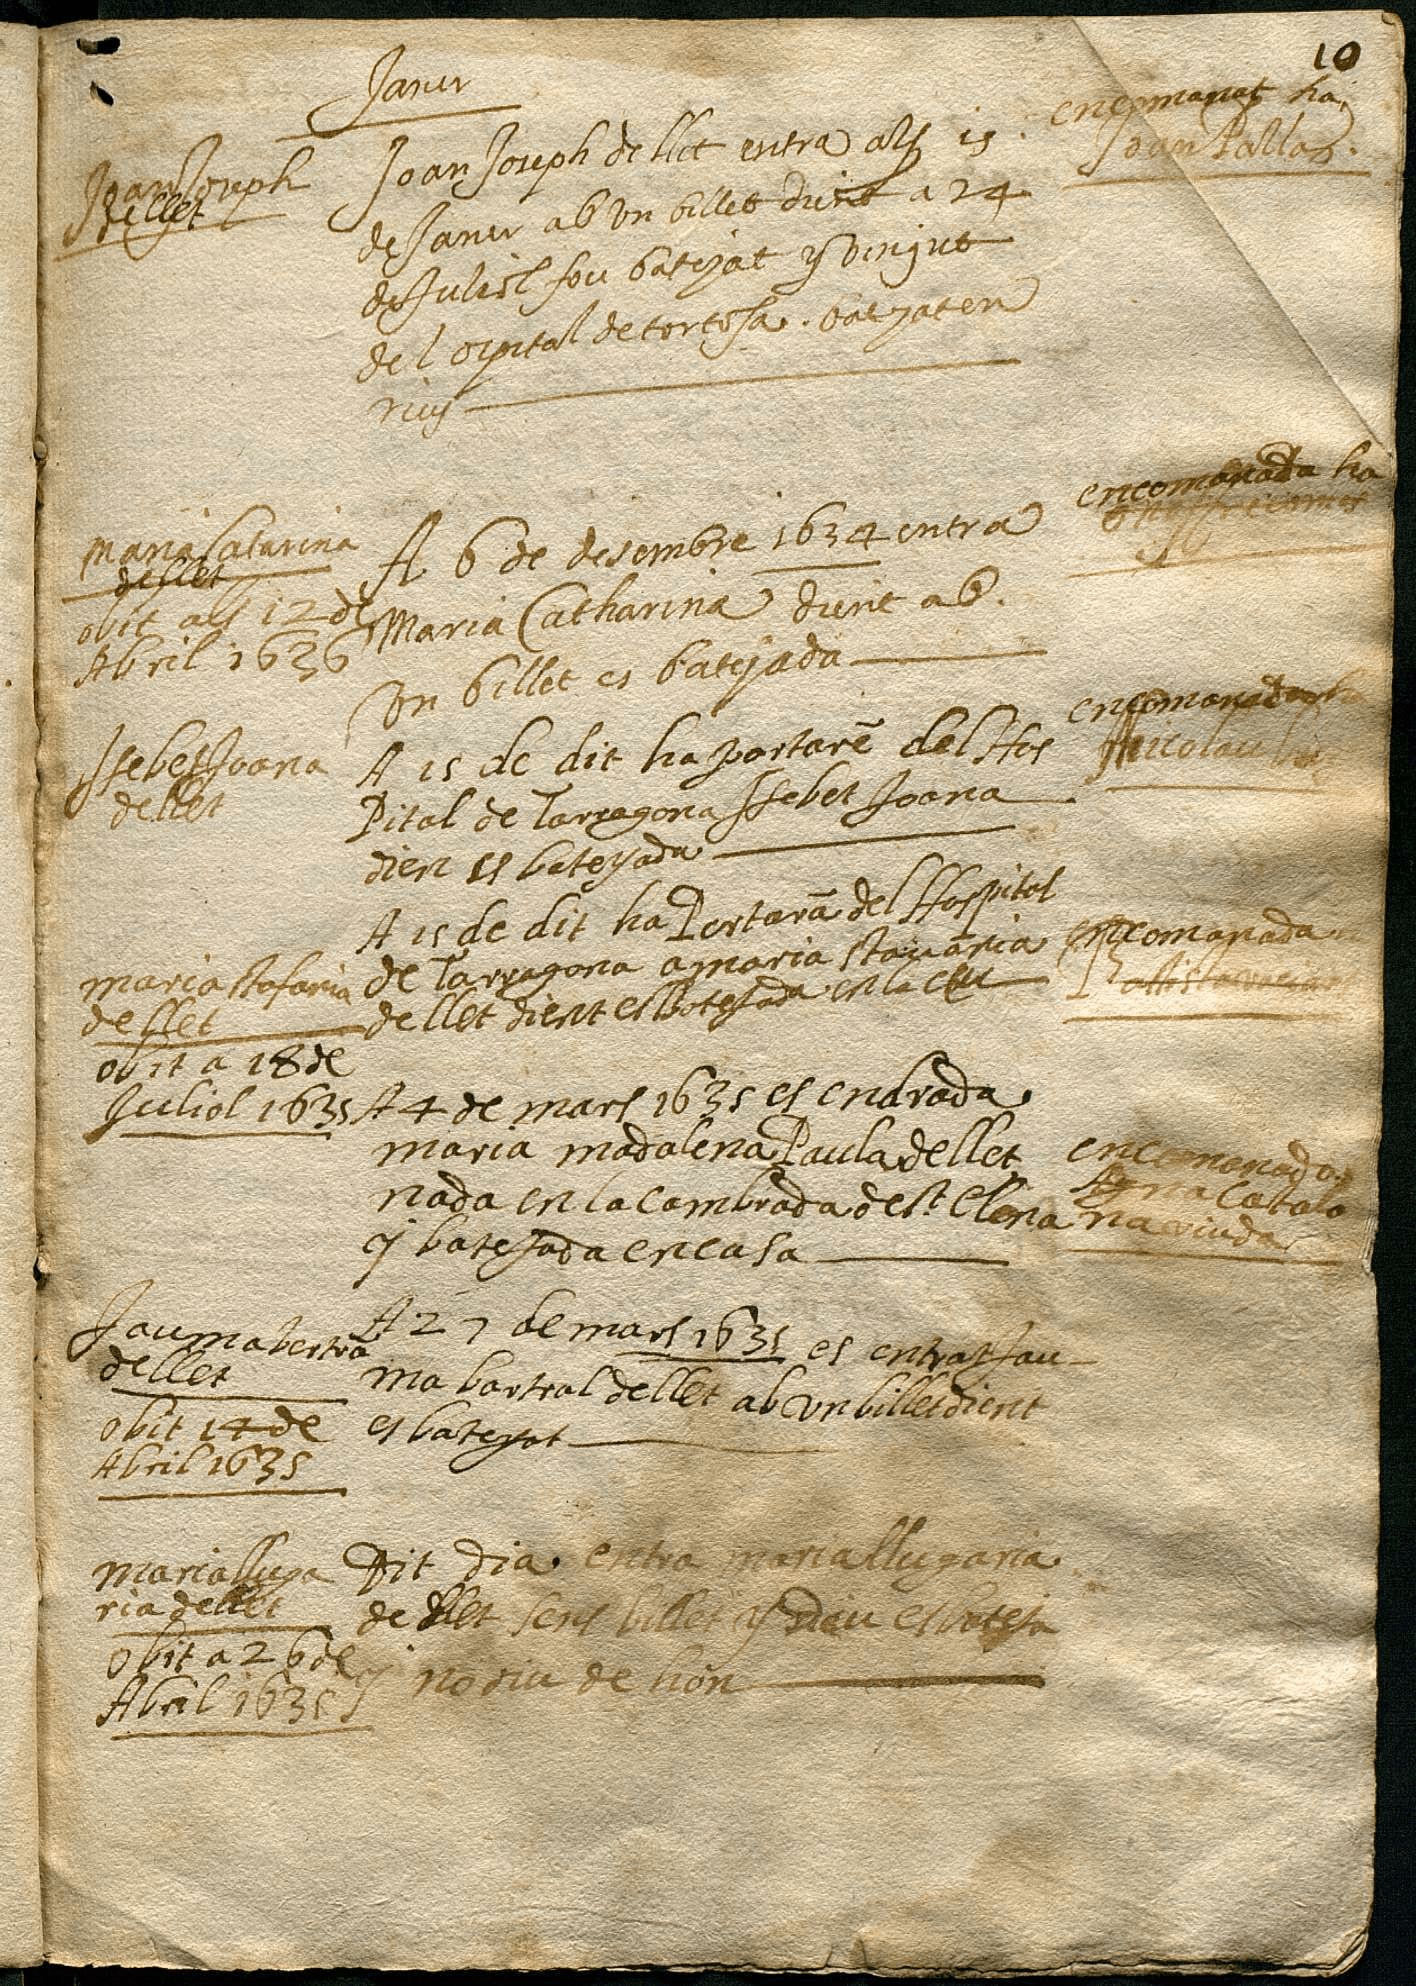 10
Janer
Joan Joseph
dellet
Joan Joseph de llet entra als 15
de Janer ab vn billet dient a 24
de Juliol fou batejat y vingut
del ospital de tortosa . batejat en
encomanat ha
Joan Pallas.
Maria Catarina
dellet
obit als 12 de
Abril 1636
A 6 de desembre 1634 entra
Maria Catharina dient ab
vn billet es batejada
encomanada ha
Issebet Joana
dellet
A 15 de dit ha portarē del Hos
Pital de Tarragona Issebet Joana
dien es bateyada
encomanada ha
Nicolau
maria stafania
dellet
obit a 18 de
Juliol 1635
A 15 de dit ha Portarā del Hospitol
de Tarragona a maria
dellet dient es botejada en la ceu
encomanada
A 4 de mars 1635 es endrada
maria madalena Paula dellet
nada en la cambrada de st. Elena
y batejada en casa
encomanada
Catala
na viuda
Jauma bertra
dellet
obit 14 de
Abril 1635
A 27 de mars 1635 es entrat Jau-
ma bartral dellet ab vn billet dient
es bateyat
maria lluga
ria dellet
obit a 26 de
Abril 1635
Dit dia entra maria llugaria
de llet sens billet y diu es bateja
y no diu de hon